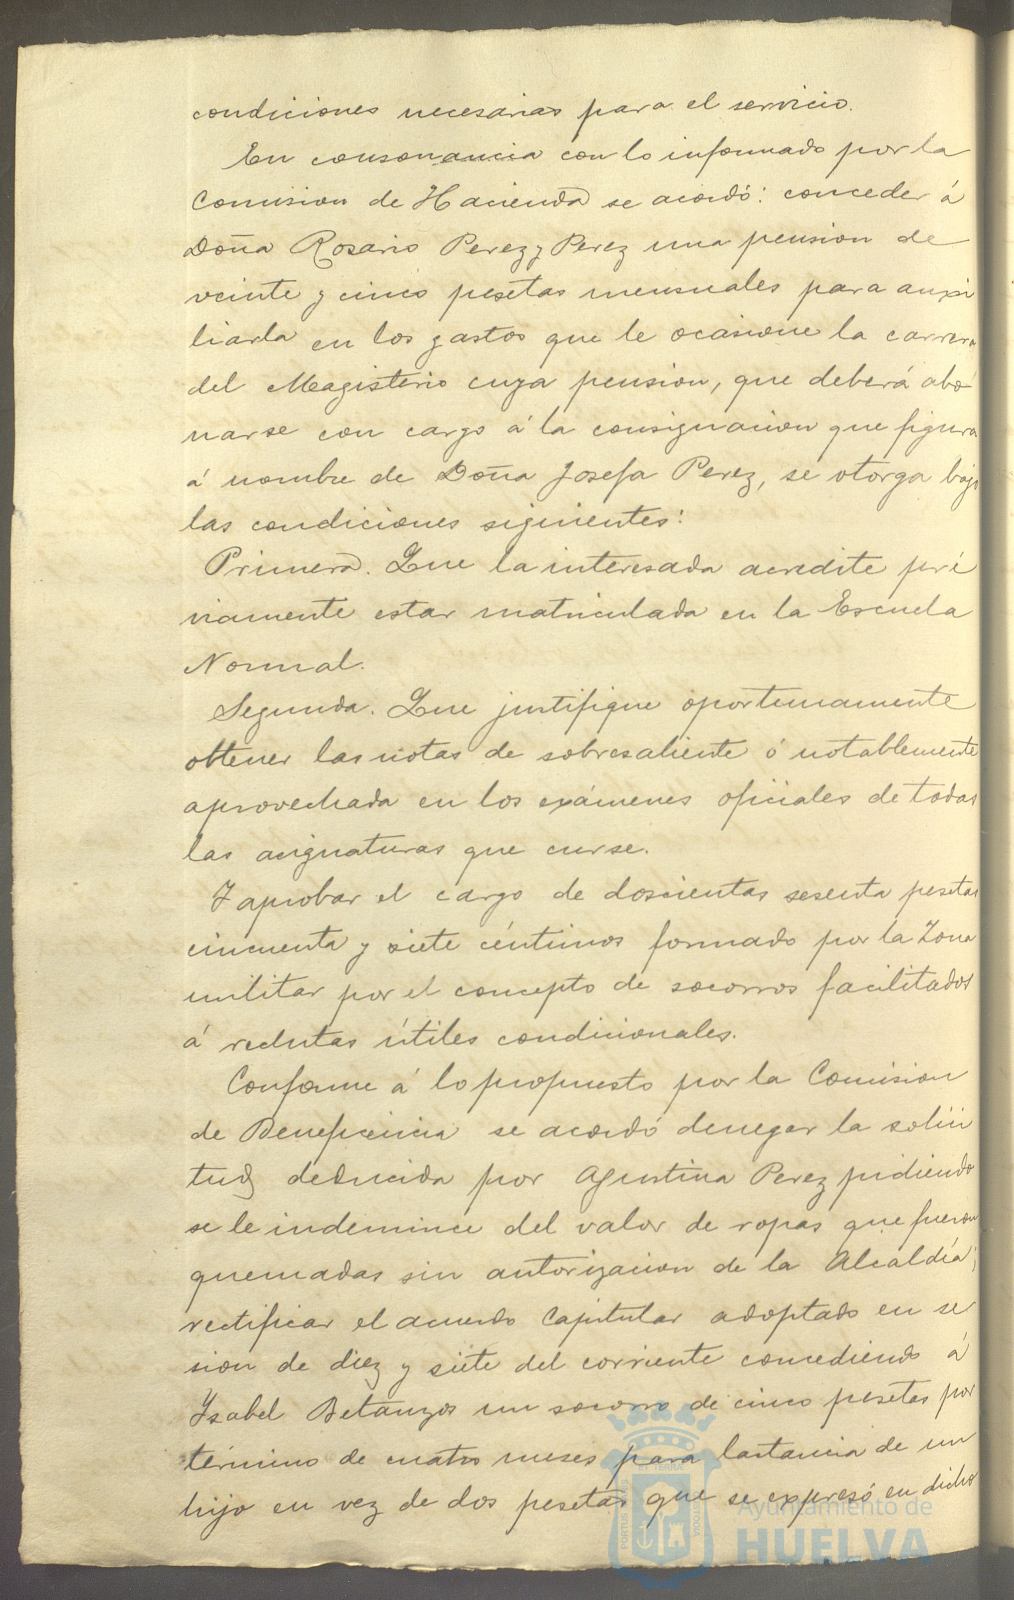 condiciones necesarias para el servicio.
En consonancia con lo informado por la
Comision de Hacienda se acordó: conceder á
Doña Rosario Perez y Perez una pension de
veinte y cinco pesetas mensuales para auxi
liarla en los gastos que le ocasione la carrera
del Magisterio cuya pension, que deberá abo
narse con cargo á la consignacion que figura
á nombre de Doña Josefa Perez, se otorga bajo
las condiciones siguientes:
Primera. Que la interesada acredite pré
viamente estar matriculada en la Escuela
Normal.
Segunda. Que justifique oportunamente
obtener las notas de sobresaliente ó notablemente
aprovechada en los exámenes oficiales de todas
las asignaturas que curse.
Y aprobar el cargo de doscientas sesenta pesetas
cincuenta y siete céntimos formado por la Zona
militar por el concepto de socorros facilitados
á reclutas útiles condicionales.
Conforme á lo propuesto por la Comision
de Beneficencia se acordó denegar la solici
tud deducida por Agustina Perez pidiendo
se le indemnice del valor de ropas que fueron
quemadas sin autorizacion de la Alcaldía;
rectificar el acuerdo Capitular adoptado en se
sion de diez y siete del corriente concediendo á
Ysabel Betanzos un socorro de cinco pesetas por
término de cuatro meses para lactancia de un
hijo en vez de dos pesetas que se expresó en dicho
Ayuntamiento de
HUELVA